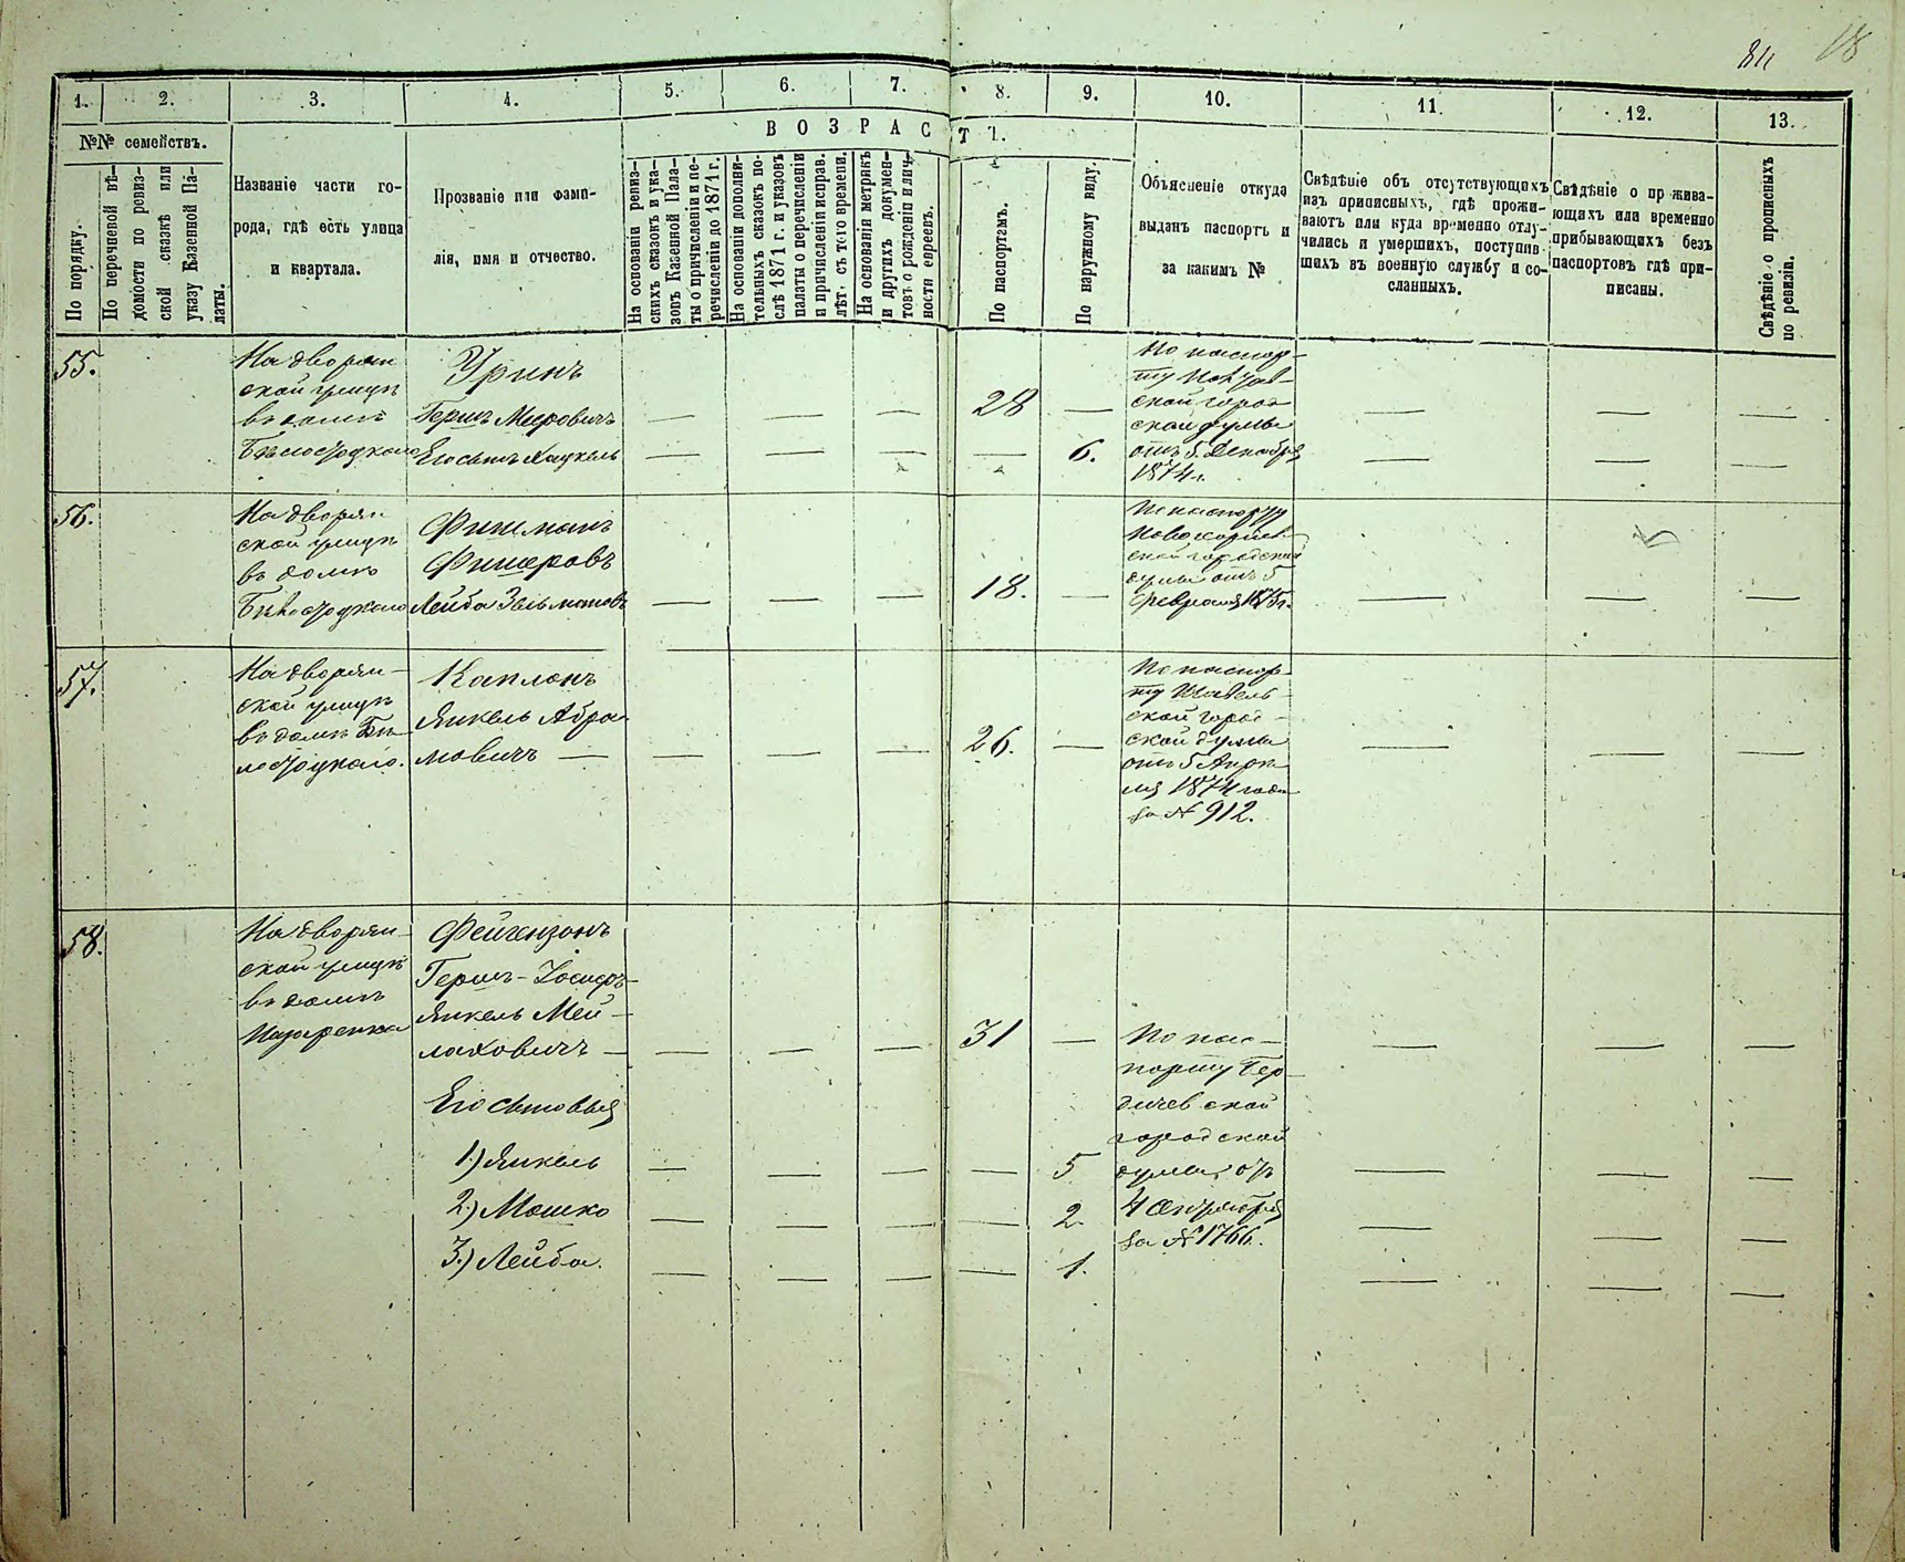 84 18
1. 2. 3. 4. 5. 6. 7. 8. 9. 10. 11. 12. 13.
№№ семействъ.
По порядку.
По перечневой вѣ-
домости по ревиз-
ской сказкѣ или
указу Казенной Па-
латы.
Названіе части го-
рода, гдѣ есть улица
и квартала.
Прозваніе или фами-
лія, имя и отчество.
ВОЗРАСТЪ.
На основаніи ревиз-
скихъ сказокъ и ука-
зовъ Казенной Пала-
ты о причисленіи и пе-
речисленіи до 1871 г.
На основаніи дополни-
тельныхъ сказокъ по-
слѣ 1871 г. и указовъ
палаты о перечисленіи
и причисленіи исправ.
лѣт. съ того времени.
На основаніи метрикъ
и другихъ докумен-
товъ о рожденіи и лич-
ности евреевъ.
По паспортамъ.
По наружному виду.
Объясненіе откуда
выданъ паспортъ и
за какимъ №
Свѣдѣніе объ отсутствующихъ
изъ приписныхъ, гдѣ прожи-
ваютъ или куда временно отлу-
чились и умершихъ, поступив-
шихъ въ военную службу и со-
сланныхъ.
Свѣдѣніе о прожива-
ющихъ или временно
прибывающихъ безъ
паспортовъ гдѣ при-
писаны.
Свѣдѣніе о прописныхъ
по ревизіи.
55.
На дворян
ской улицѣ
въ домѣ
Бѣлостоцкаго
Уринъ
Гершъ Мееровичъ
Его сынъ Хацкель
28
6.
По паспор-
ту
ской город
ской думы
отъ 5 Декабря
1874 г.
56.
На дворян
ской улицѣ
въ домѣ
Бѣлостоцкаго
Фишманъ
Фишеровъ
Лейба Зельмановъ
18.
По паспорту
ской городской
думы отъ 5
февраля 1875 г.
57.
На дворян-
ской улицѣ
въ домѣ Бѣ
лостоцкаго.
Капланъ
Янкель Абра
мовичъ
26.
По паспор-
ту Шавель-
ской город-
ской думы
отъ 5 Апрѣ
ля 1874 года
за № 912.
58.
На дворян-
ской улицѣ
въ домѣ
Назаренка
Фейгензонъ
Гершъ-Іосифъ-
Янкель Мей-
лаховичъ
31
По пас-
порту Бер-
дичевской
городской
думы отъ
4 Октября
за № 1766.
Его сыновья
1.) Янкель
5
2.) Мошко
2.
3.) Лейба.
1.